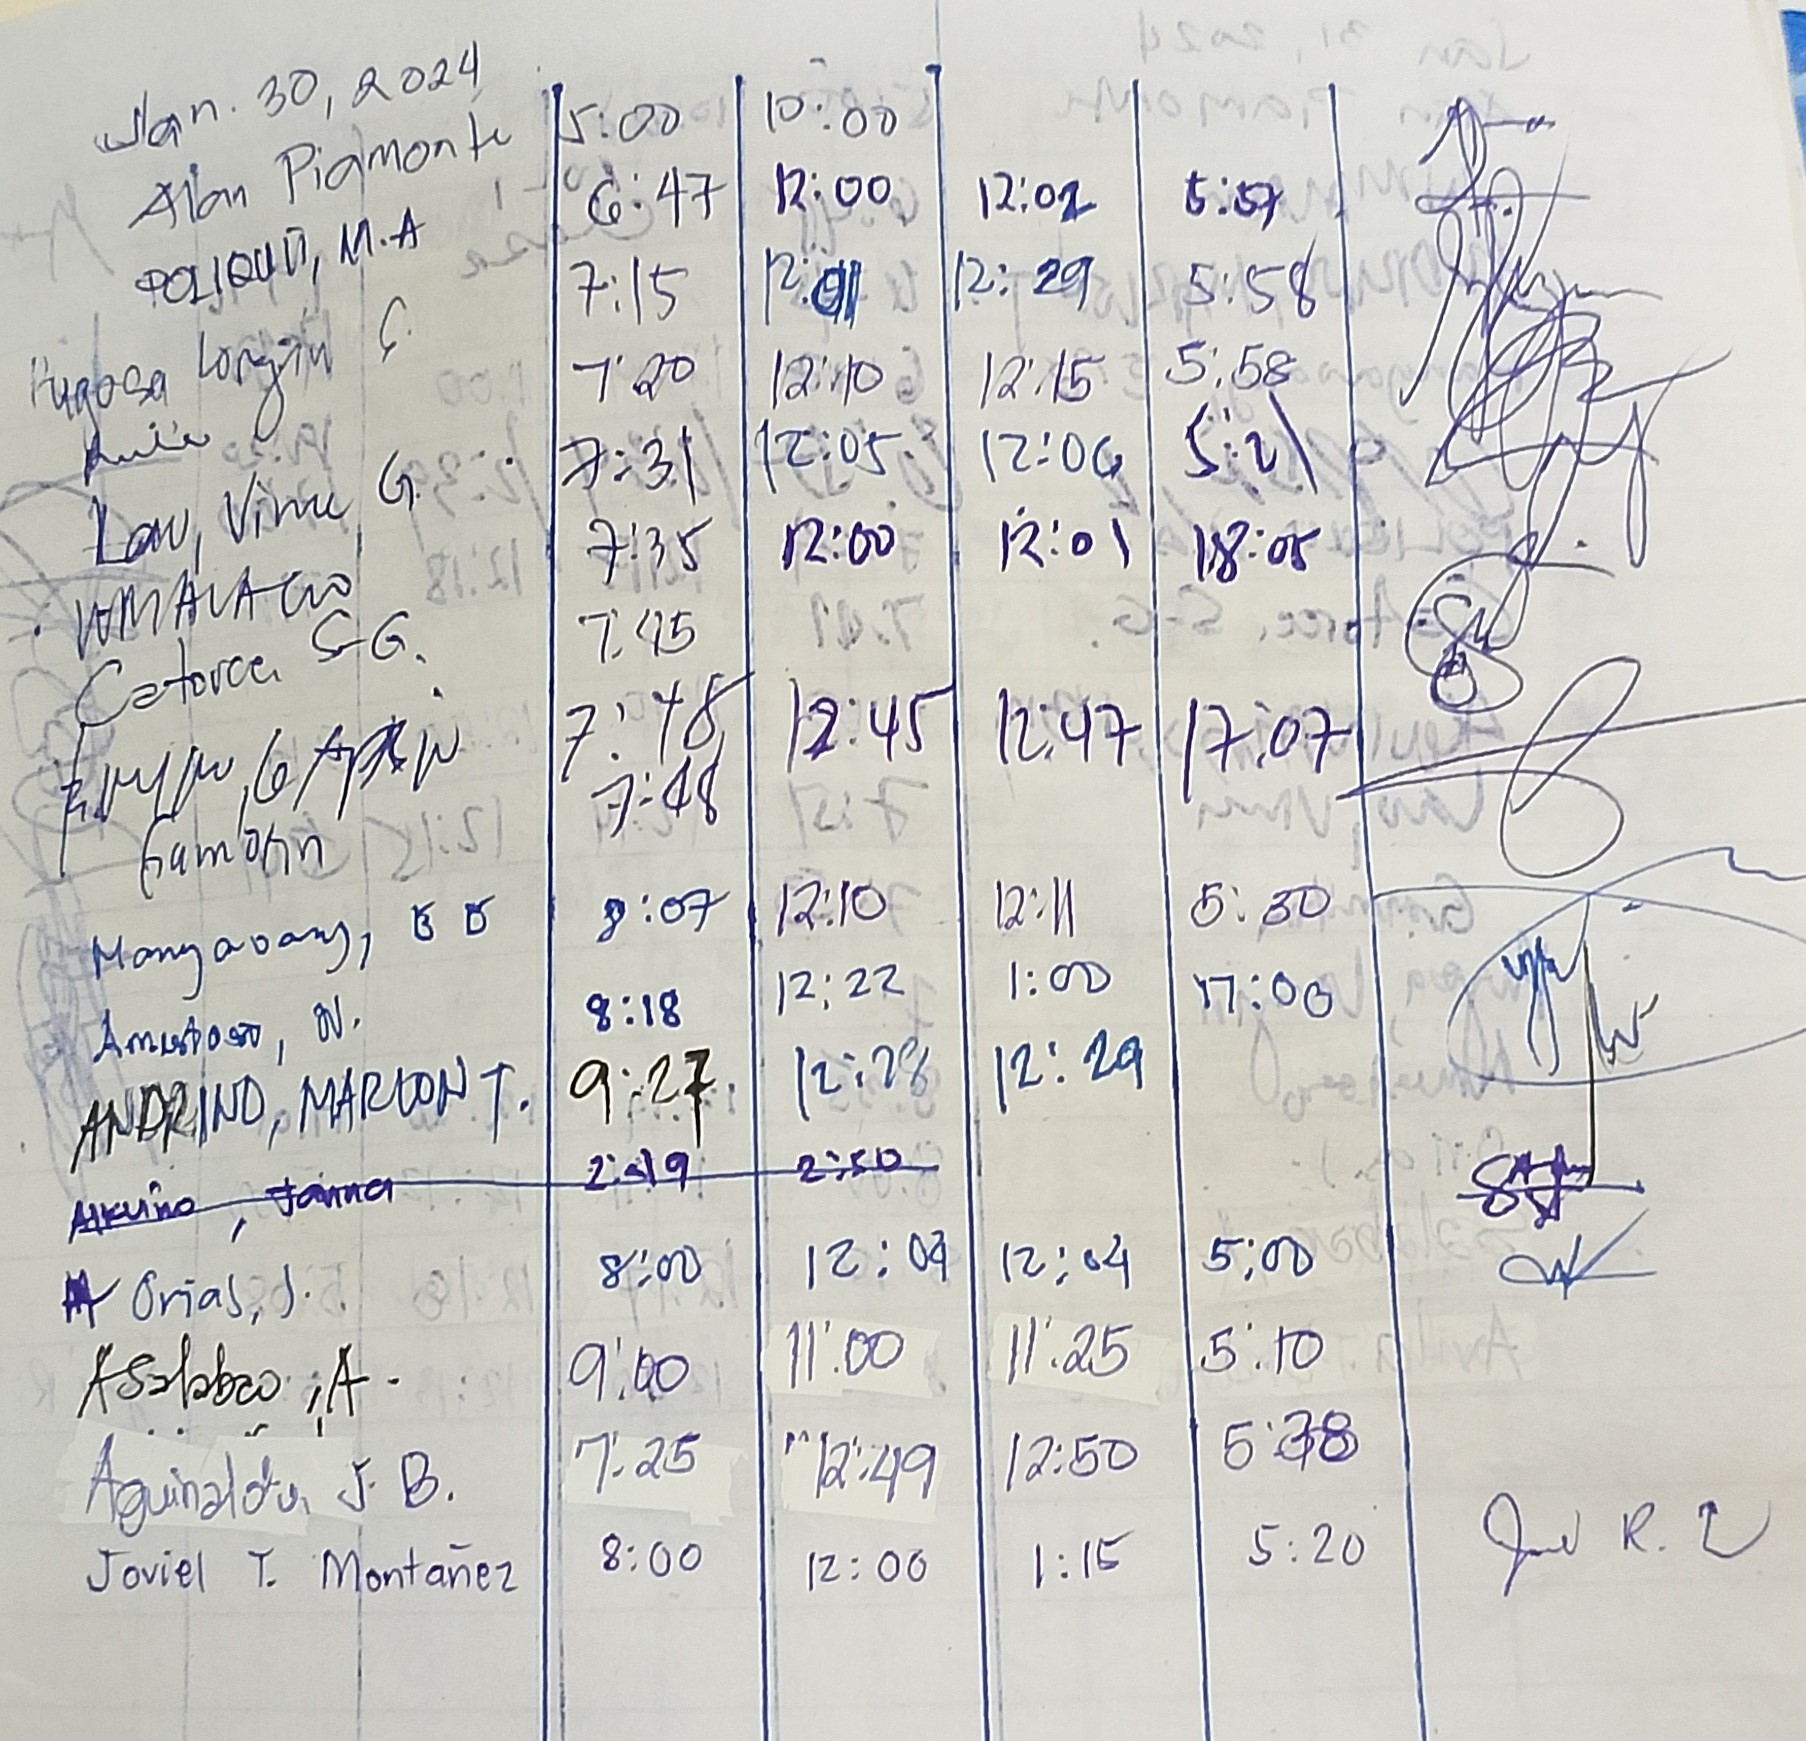 Jan. 30, 2024
Alan Piamonte 5:00 10:00
POLIQUIT, M.A 6:47 12:00 12:02 5:57
Pugosa Longinu C. 7:15 12:01 12:29 5:58
7:20 12:10 12:15 5:58
Law, Vince G. 7:31 12:05 12:06 5:21
7:35 12:00 12:01 18:05
Catorce S-G. 7:45
7:48 12:45 12:47 17:07
Gamotin 7:48
Mangaoang, B B 8:07 12:10 12:11 5:30
N. 8:18 12:22 1:00 17:00
ANDRINO, MARLON T. 9:27 12:28 12:29
Alkuino, Janna 2:49 2:50
Orias, J. 8:00 12:04 12:04 5:00
Asalabao, A. 9:00 11:00 11:25 5:10
Aguinaldo, J. B. 7:25 12:49 12:50 5:38
Joviel T. Montañez 8:00 12:00 1:15 5:20